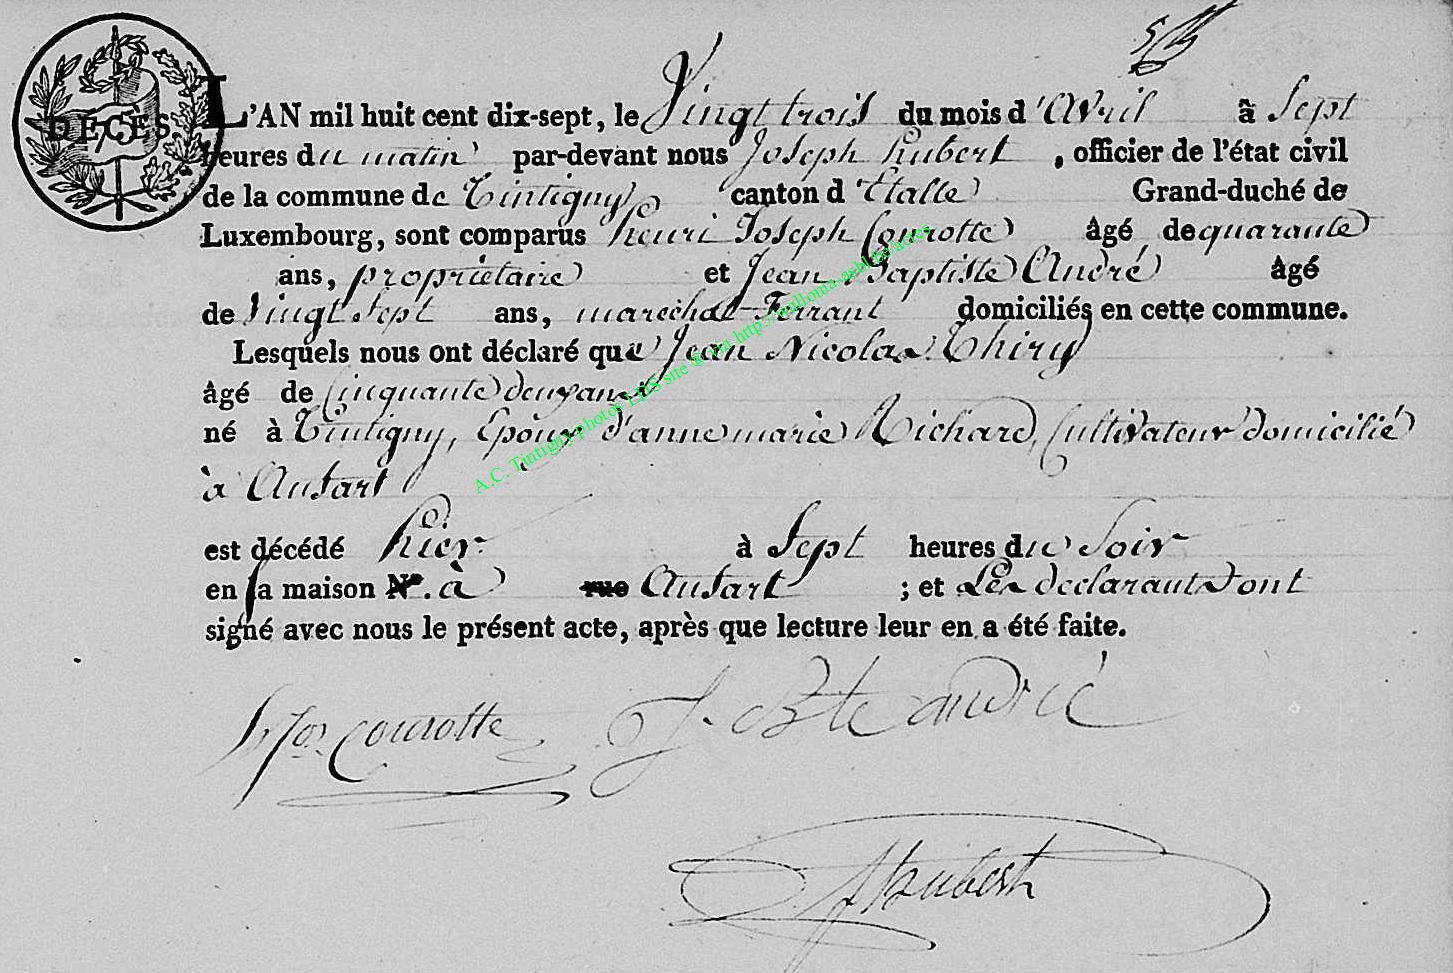 DÉCÈS
L'AN mil huit cent dix-sept, le Vingt trois du mois d'Avril à Sept
heures du matin par-devant nous Joseph hubert, officier de l'état civil
de la commune de Tintigny canton d'Etalle Grand-duché de
Luxembourg, sont comparus henri Joseph Courotte âgé de quarante
ans, propriètaire et Jean Baptiste André âgé
de Vingt Sept ans, marechal Ferrant domiciliés en cette commune.
Lesquels nous ont déclaré que Jean Nicolas Thiry
âgé de Cinquante deux ans
né à Tintigny, Epoux d'anne marie Richard, Cultivateur domicilié
à Ansart
est décédé hier à Sept heures du Soir
en sa maison N°. à rue Ansart ; et Les declarants ont
signé avec nous le présent acte, après que lecture leur en a été faite.
courotte J. Bte andré
hubert
A.C. Tintigny photos LDS site